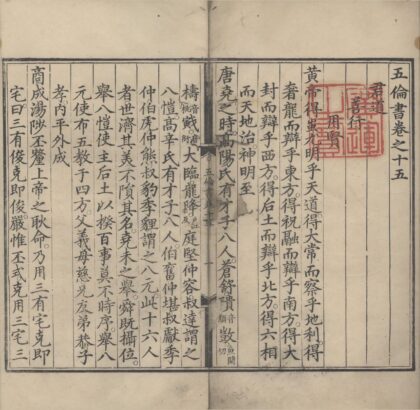 五倫書卷之十五
君道
善行
用賢
黃帝得蚩尤明乎天道得大常而察乎地利得
奢龍而辯乎東方得祝融而辯乎南方得大
封而辯乎西方得后土而辯乎北方得六相
而天地治神明至
唐堯之時高陽氏有才子八人蒼舒隤敳
檮戭大臨龍降庭堅仲容叔達謂之
八愷高辛氏有才子八人伯奮仲堪叔獻季
仲伯虎仲熊叔豹季貍謂之八元此十六人
者世濟其美不隕其名堯未之舉舜既攝位
舉八愷使主后土以揆百事莫不時序舉八
元使布五教于四方父義母慈兄友弟恭子
孝內平外成
商成湯陟丕釐上帝之耿命乃用三有宅克即
宅曰三有俊克即俊嚴惟丕式克用三宅三